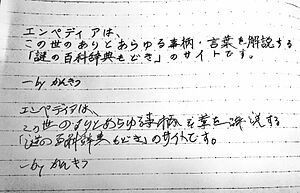 エンペディアは、
この世のありとあらゆる事柄・言葉を解説する
「謎の百科辞典もどき」のサイトです。
—by かんきつ
エンペディアは、
この世のありとあらゆる事柄・言葉を解説する
「謎の百科辞典もどき」のサイトです。
—by かんきつ